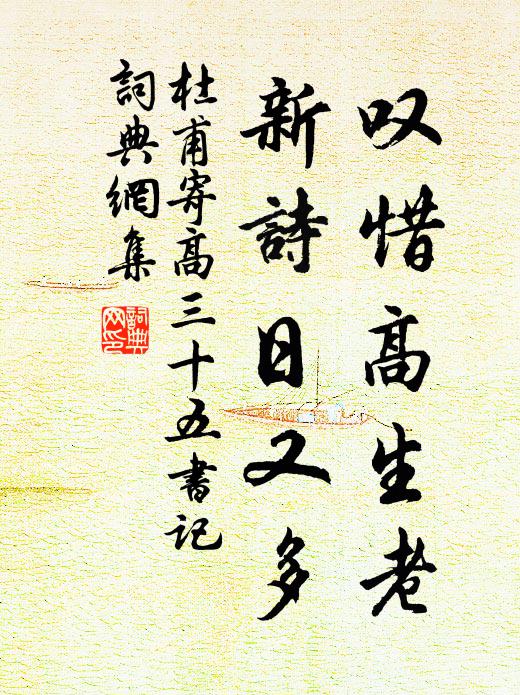 叹惜高生老
新詩日又多
杜甫寄高三十五書记
詞典網集
詞典网印